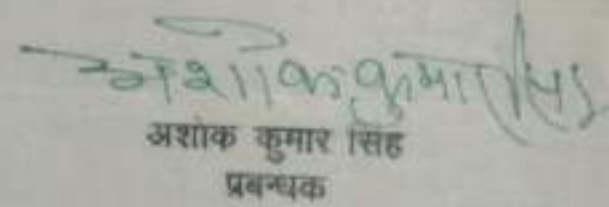 अशोक कुमार सिंह
अशोक कुमार सिंह
प्रबन्धक